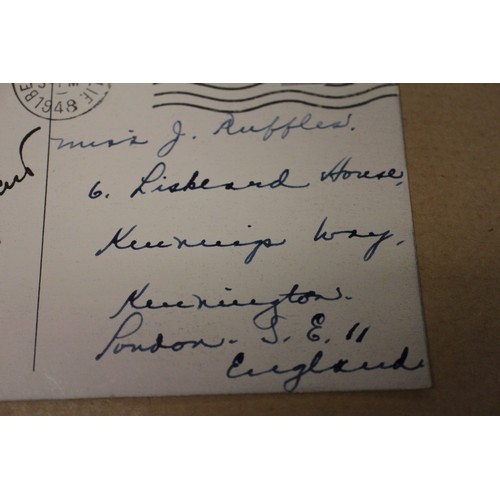 1948
Miss J. Ruffles.
6. Liskeard House,
Kennings Way,
Kennington.
London. S. E. 11
England